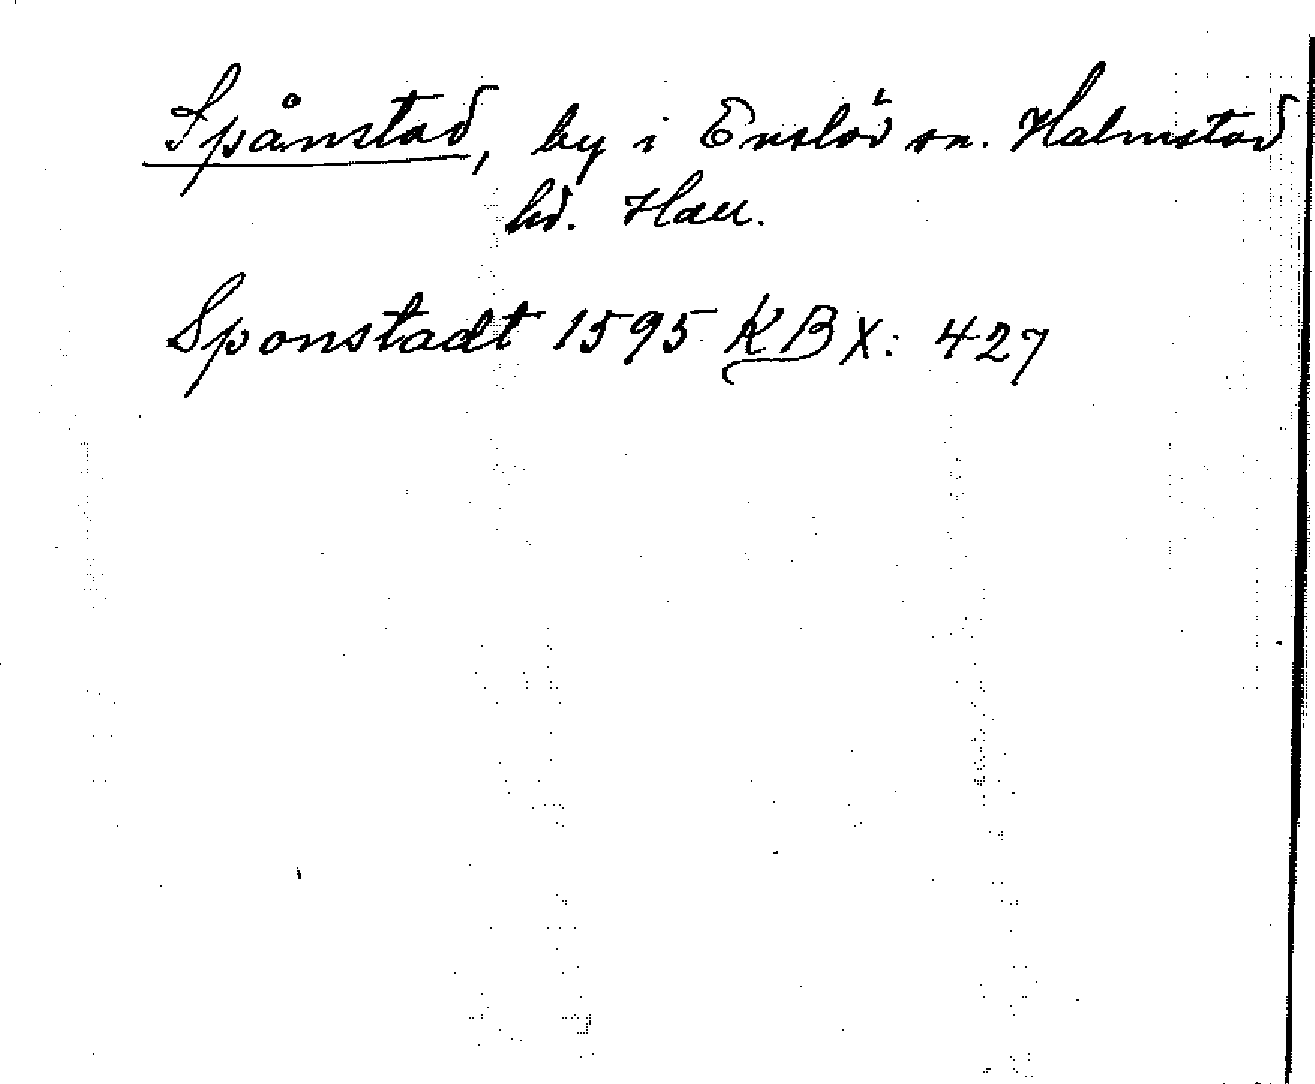 Spånstad, by i Enslöv sn. Halmstad
hd. Hall.
Sponstadt 1595 KB X: 427